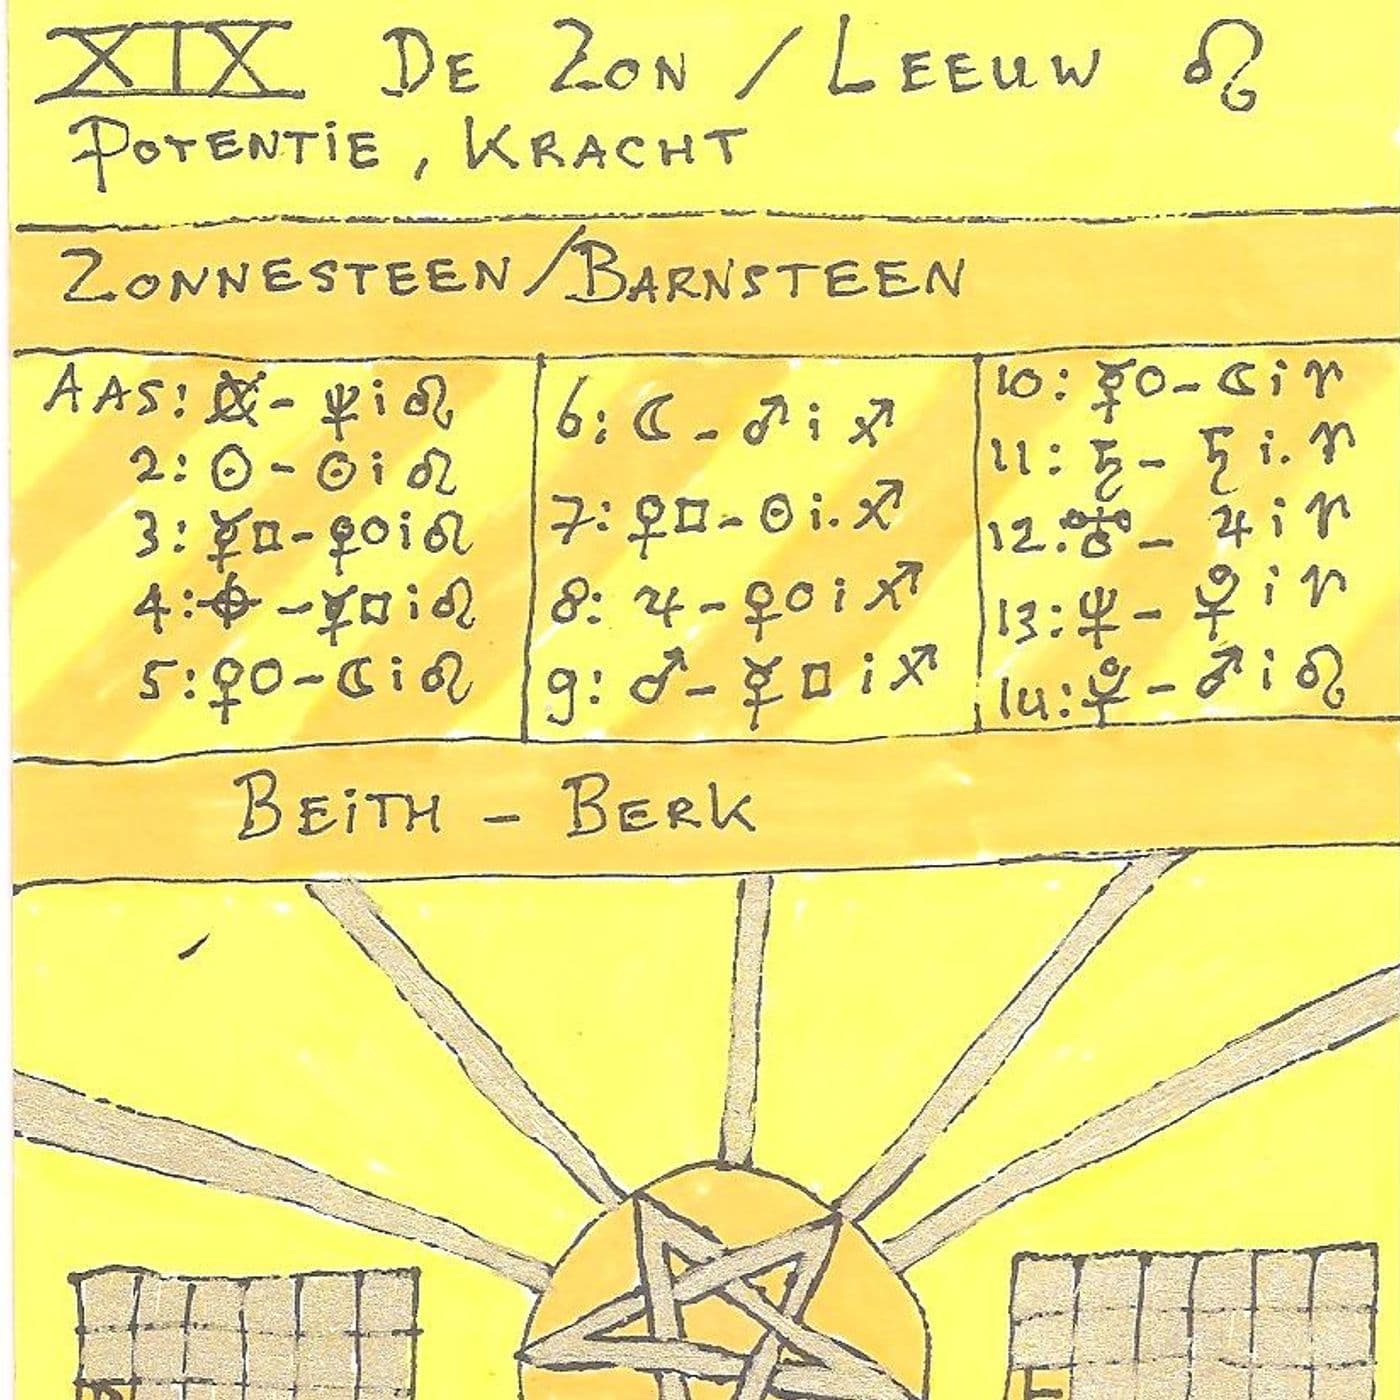 XIX De Zon / Leeuw ♌
Potentie, Kracht
Zonnesteen/Barnsteen
AAS: - ♆ i ♌
2: ☉ - ☉ i ♌
3: ☿□ - ♀○ i ♌
4: - ☿□ i ♌
5: ♀○ - ☾ i ♌
6: ☾ - ♂ i ♐
7: ♀□ - ☉ i. ♐
8: ♃ - ♀○ i ♐
9: ♂ - ☿□ i ♐
10: ☿○ - ☾ i ♈
11: ♄ - ♄ i. ♈
12: ♅ - ♃ i ♈
13: ♆ - ♀ i ♈
14: - ♂ i ♌
Beith - Berk